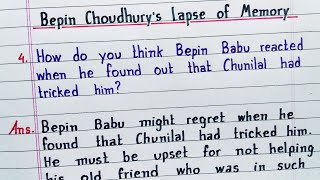 Bepin Choudhury's Lapse of Memory
4. How do you think Bepin Babu reacted
when he found out that Chunilal had
tricked him?
Ans. Bepin Babu might regret when he
found that Chunilal had tricked him.
He must be upset for not helping
his old friend who was in such